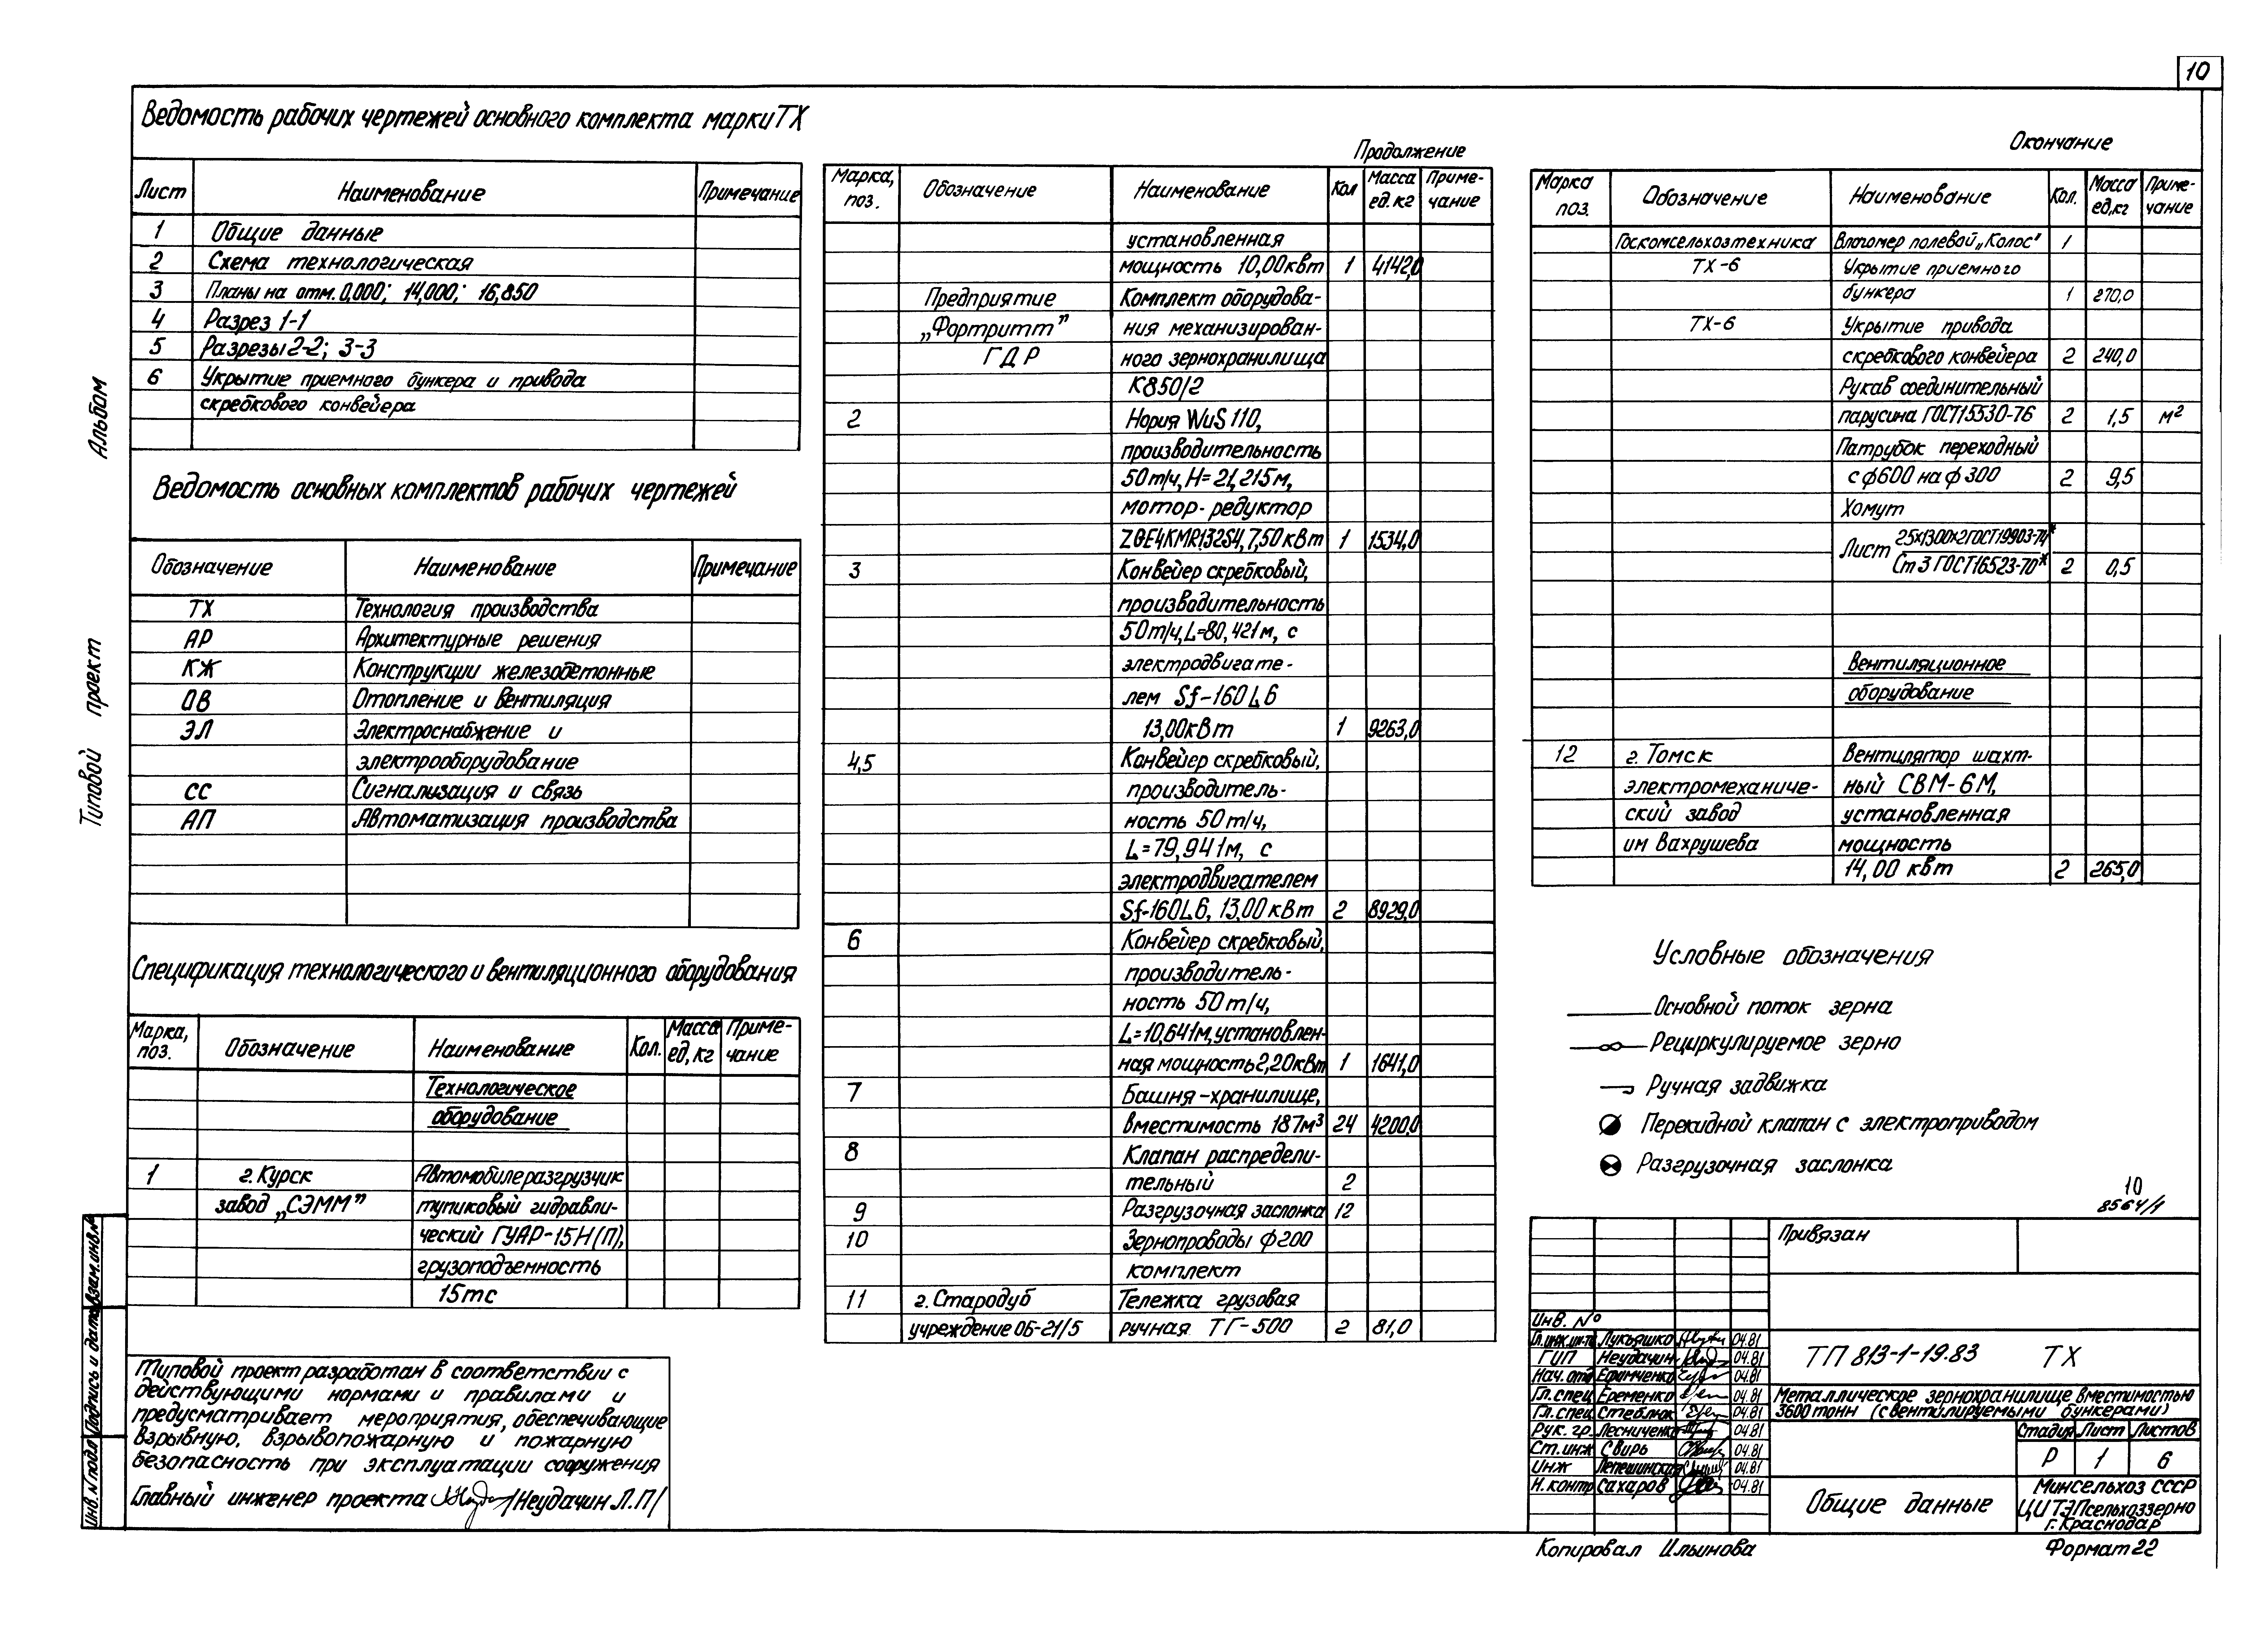 10
Ведомость рабочих чертежей основного комплекта марки ТХ
Лист Наименование Примечание
1 Общие данные
2 Схема технологическая
3 Планы на отм. 0,000; 14,000; 16,850
4 Разрез 1-1
5 Разрезы 2-2; 3-3
6 Укрытие приемного бункера и привода
скребкового конвейера
Ведомость основных комплектов рабочих чертежей
Обозначение Наименование Примечание
ТХ Технология производства
АР Архитектурные решения
КЖ Конструкции железобетонные
ОВ Отопление и вентиляция
ЭЛ Электроснабжение и
электрооборудование
СС Сигнализация и связь
АП Автоматизация производства
Спецификация технологического и вентиляционного оборудования
Марка, поз. Обозначение Наименование Кол. Масса ед, кг Приме-чание
Технологическое
оборудование
1 г. Курск Автомобилеразгрузчик
завод „СЭММ” тупиковый гидравли-
ческий ГУАР-15Н(П),
грузоподъемность
15тс
Типовой проект разработан в соответствии с
действующими нормами и правилами и
предусматривает мероприятия, обеспечивающие
взрывную, взрывопожарную и пожарную
безопасность при эксплуатации сооружения
Главный инженер проекта /Неудачин Л.П/
Альбом
Типовой проект
Взам. инв.№
Подпись и дата
Инв. № подл
Продолжение
Марка, поз. Обозначение Наименование Кол Масса ед. кг Приме-чание
установленная
мощность 10,00квт 1 4142,0
Предприятие Комплект оборудова-
„Фортритт” ния механизирован-
ГДР ного зернохранилища
К850/2
2 Нория WuS 110,
производительность
50т/ч, Н=21,215м,
мотор-редуктор
ZGE4KMR132S4, 7,50кВт 1 1534,0
3 Конвейер скребковый,
производительность
50т/ч, L=80,421м, с
электродвигате-
лем Sf-160L6
13,00кВт 1 9263,0
4,5 Конвейер скребковый,
производитель-
ность 50т/ч,
L=79,941м, с
электродвигателем
Sf-160L6, 13,00кВт 2 8929,0
6 Конвейер скребковый,
производитель-
ность 50т/ч,
L=10,641м, установлен-
ная мощность 2,20кВт 1 1641,0
7 Башня-хранилище,
вместимость 187м³ 24 4200,0
8 Клапан распредели-
тельный 2
9 Разгрузочная заслонка 12
10 Зернопроводы ф200
комплект
11 г. Стародуб Тележка грузовая
учреждение ОБ-21/5 ручная ТГ-500 2 81,0
Окончание
Марка поз. Обозначение Наименование Кол. Масса ед,кг Приме-чание
Госкомсельхозтехника Влагомер полевой „Колос” 1
ТХ-6 Укрытие приемного
бункера 1 270,0
ТХ-6 Укрытие привода
скребкового конвейера 2 240,0
Рукав соединительный
парусина ГОСТ15530-76 2 1,5 м²
Патрубок переходный
с ф600 на ф300 2 9,5
Хомут
Лист 25х1300х2ГОСТ19903-74*
Ст3 ГОСТ16523-70* 2 0,5
Вентиляционное
оборудование
12 г. Томск Вентилятор шахт-
электромеханиче- ный СВМ-6М,
ский завод установленная
им Вахрушева мощность
14,00 квт 2 265,0
Условные обозначения
Основной поток зерна
Рециркулируемое зерно
Ручная задвижка
Перекидной клапан с электроприводом
Разгрузочная заслонка
10
8564/1
Привязан
Инв. №
Гл.инж.ин-та Лукьяшко 04.81
ГИП Неудачин 04.81
Нач. отд Ефимченко 04.81
Гл. спец Еременко 04.81
Гл. спец Стеблюк 04.81
Рук. гр. Лесниченко 04.81
Ст. инж Свирь 04.81
Инж Лепешинская 04.81
Н. контр Сахаров 04.81
ТП 813-1-19.83 ТХ
Металлическое зернохранилище вместимостью
3600 тонн (с вентилируемыми бункерами)
Стадия Лист Листов
Р 1 6
Общие данные
Минсельхоз СССР
ЦИТЭПсельхоззерно
г. Краснодар
Копировал Ильинова
Формат 22